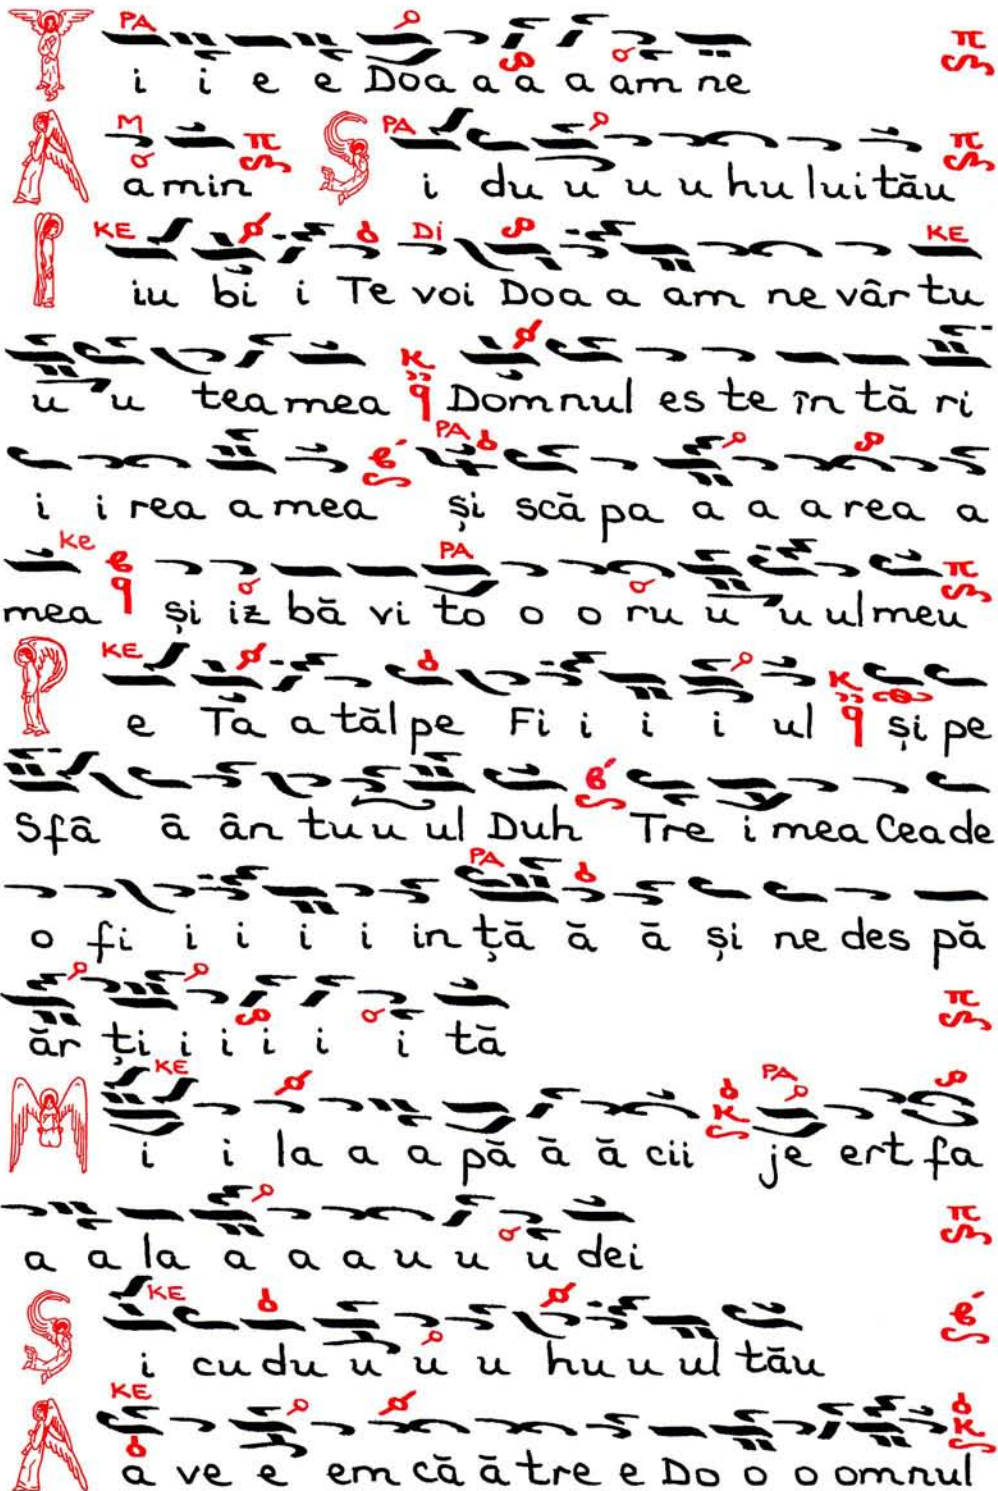 PA
Ti i e e Doa a a a am ne
M PA
A a min Si du u u u hu lui tău
KE DI KE
I iu bi i Te voi Doa a am ne vâr tu
u u tea mea Domnul es te în tă ri
PA
i i rea a mea și scă pa a a a rea a
ke PA
mea și iz bă vi to o o ru u u ul meu
KE
Pe Ta a tăl pe Fi i i i ul și pe
Sfâ â ân tu u ul Duh Tre i mea Cea de
PA
o fi i i i i in ță ă ă și ne des pă
ăr ți i i i i i tă
KE PA
Mi i la a a pă ă ă cii je ert fa
a a la a a a u u u dei
KE
Si cu du u u u hu u ul tău
KE
A a ve e em că ă tre e Do o o omnul